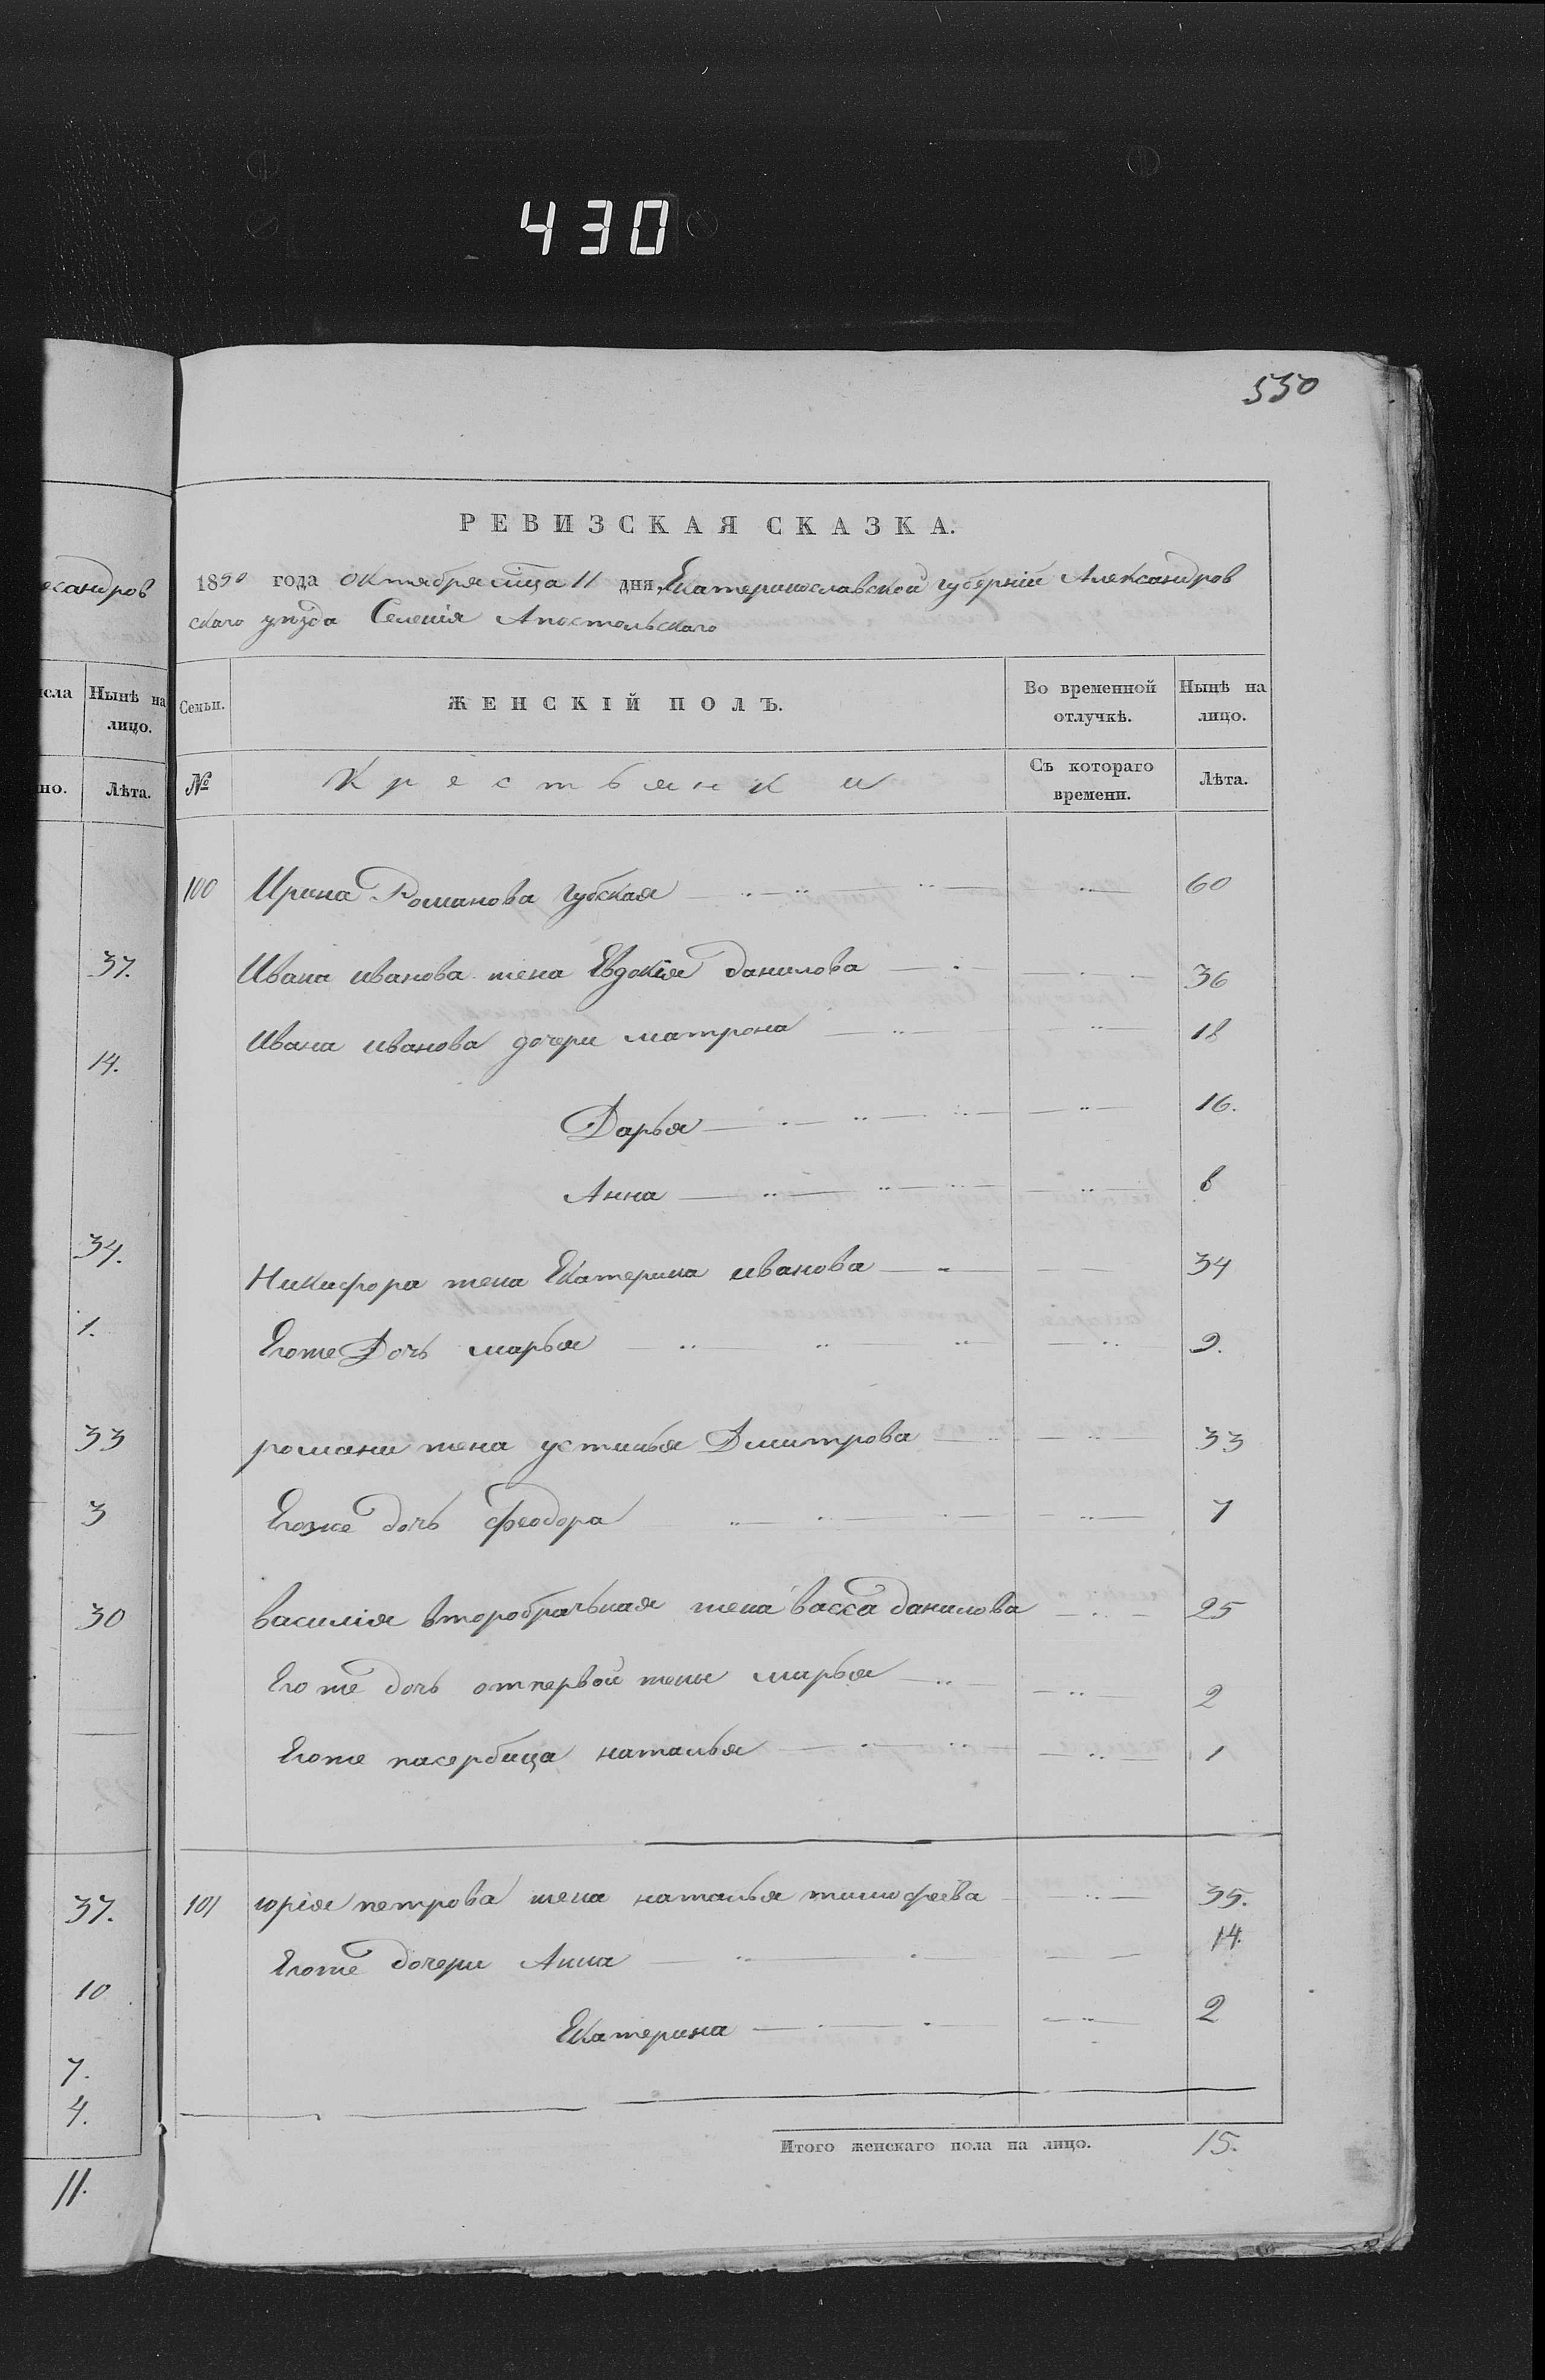 430
550
есандров
РЕВИЗСКАЯ СКАЗКА.
1850 года октября мца 11 дня, Екатеринославской губерніи Александров
скаго уѣзда Селенія Апостольскаго
исла Нынѣ на лицо.
но. Лѣта.
37.
14.
34.
1.
33
3
30
37.
10
7.
4.
11.
Семьи. ЖЕНСКІЙ ПОЛЪ. Во временной отлучкѣ. Нынѣ на лицо.
№ Крестьянки Съ котораго времени. Лѣта.
100 Ирина Романова Губская 60
Ивана иванова жена Евдокія данилова 36
Ивана иванова дочери матрона 18
Дарья 16.
Анна 8
Никифора жена Екатерина иванова 34
Егоже Дочь марья 9.
романа жена устинья Дмитрова 33
Егоже дочь феодора 7
василія второбрачьная жена васса данилова 25
Его же дочь отпервой жены марья 2
Егоже пасербица наталья 1
101 юрія петрова жена наталья тимофеева 35.
Егоже дочери Анна 14.
Екатерина 2
Итого женскаго пола на лицо. 15.